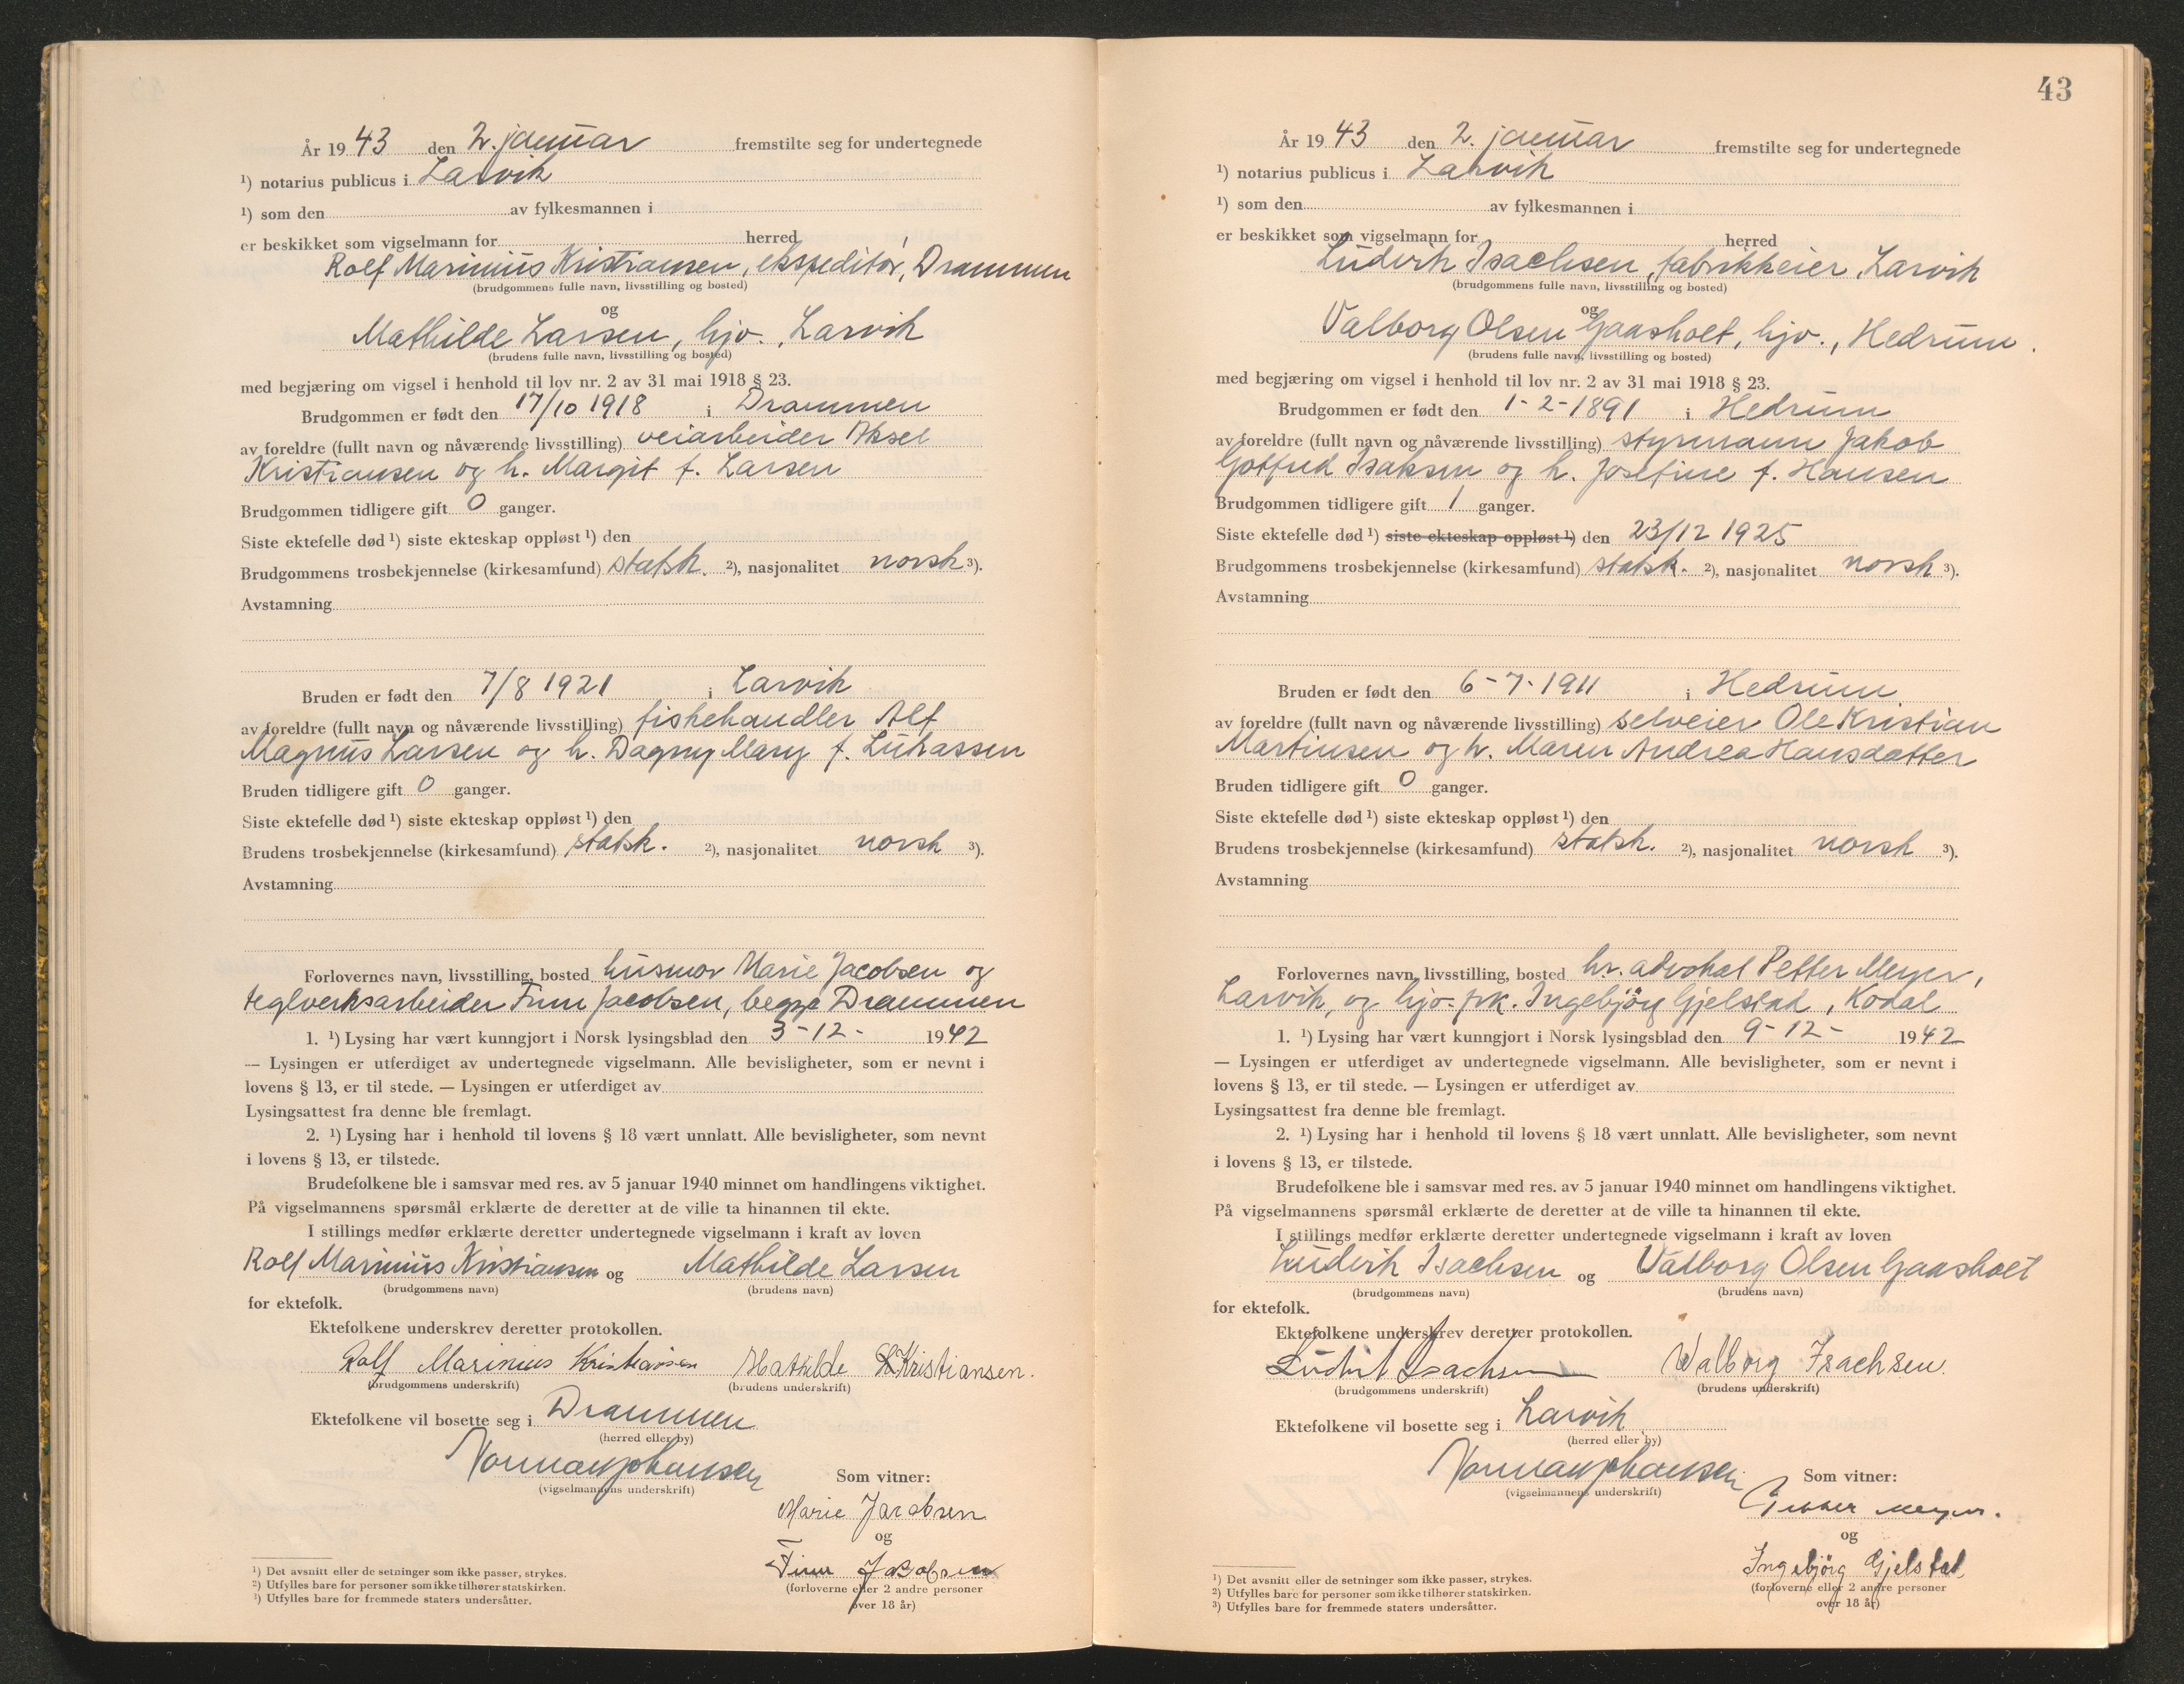 År 1943 den 2. januar fremstilte seg for undertegnede
¹) notarius publicus i Larvik
¹) som den av fylkesmannen i
er beskikket som vigselmann for herred
Rolf Marinius Kristiansen, ekspeditør, Drammen
(brudgommens fulle navn, livsstilling og bosted)
og
Mathilde Larsen, hjv., Larvik
(brudens fulle navn, livsstilling og bosted)
med begjæring om vigsel i henhold til lov nr. 2 av 31 mai 1918 § 23.
Brudgommen er født den 17/10 1918 i Drammen
av foreldre (fullt navn og nåværende livsstilling) veiarbeider Aksel
Kristiansen og h. Margit f. Larsen
Brudgommen tidligere gift 0 ganger.
Siste ektefelle død ¹) siste ekteskap oppløst ¹) den
Brudgommens trosbekjennelse (kirkesamfund) statsk. ²), nasjonalitet norsk ³).
Avstamning
Bruden er født den 7/8 1921 i Larvik
av foreldre (fullt navn og nåværende livsstilling) fiskehandler Alf
Magnus Larsen og h. Dagny Mary f. Lukassen
Bruden tidligere gift 0 ganger.
Siste ektefelle død ¹) siste ekteskap oppløst ¹) den
Brudens trosbekjennelse (kirkesamfund) statsk. ²), nasjonalitet norsk ³).
Avstamning
Forlovernes navn, livsstilling, bosted husmor Marie Jacobsen og
teglverksarbeider Finn Jacobsen, begge Drammen
1. ¹) Lysing har vært kunngjort i Norsk lysingsblad den 3-12- 1942
— Lysingen er utferdiget av undertegnede vigselmann. Alle bevisligheter, som er nevnt i
lovens § 13, er til stede. — Lysingen er utferdiget av
Lysingsattest fra denne ble fremlagt.
2. ¹) Lysing har i henhold til lovens § 18 vært unnlatt. Alle bevisligheter, som nevnt
i lovens § 13, er tilstede.
Brudefolkene ble i samsvar med res. av 5 januar 1940 minnet om handlingens viktighet.
På vigselmannens spørsmål erklærte de deretter at de ville ta hinannen til ekte.
I stillings medfør erklærte deretter undertegnede vigselmann i kraft av loven
Rolf Marinius Kristiansen og Mathilde Larsen
(brudgommens navn) (brudens navn)
for ektefolk.
Ektefolkene underskrev deretter protokollen.
Rolf Marinius Kristiansen Mathilde Kristiansen.
(brudgommens underskrift) (brudens underskrift)
Ektefolkene vil bosette seg i Drammen
(herred eller by)
Norman Johansen
(vigselmannens underskrift)
Som vitner:
Marie Jacobsen
og
Finn Jacobsen
(forloverne eller 2 andre personer
over 18 år)
¹) Det avsnitt eller de setninger som ikke passer, strykes.
²) Utfylles bare for personer som ikke tilhører statskirken.
³) Utfylles bare for fremmede staters undersåtter.
43
År 1943 den 2. januar fremstilte seg for undertegnede
¹) notarius publicus i Larvik
¹) som den av fylkesmannen i
er beskikket som vigselmann for herred
Ludvik Isachsen, fabrikkeier, Larvik
(brudgommens fulle navn, livsstilling og bosted)
og
Valborg Olsen Gaasholt, hjv., Hedrum.
(brudens fulle navn, livsstilling og bosted)
med begjæring om vigsel i henhold til lov nr. 2 av 31 mai 1918 § 23.
Brudgommen er født den 1-2-1891 i Hedrum
av foreldre (fullt navn og nåværende livsstilling) styrmann Jakob
Gotfred Isaksen og h. Josefine f. Hansen
Brudgommen tidligere gift 1 ganger.
Siste ektefelle død ¹) siste ekteskap oppløst ¹) den 23/12 1925
Brudgommens trosbekjennelse (kirkesamfund) statsk. ²), nasjonalitet norsk ³).
Avstamning
Bruden er født den 6-7-1911 i Hedrum
av foreldre (fullt navn og nåværende livsstilling) selveier Ole Kristian
Martinsen og h. Maren Andrea Hansdatter
Bruden tidligere gift 0 ganger.
Siste ektefelle død ¹) siste ekteskap oppløst ¹) den
Brudens trosbekjennelse (kirkesamfund) statsk. ²), nasjonalitet norsk ³).
Avstamning
Forlovernes navn, livsstilling, bosted hr. advokat Petter Meyer,
Larvik, og hjv. frk. Ingebjörg Gjelstad, Kodal
1. ¹) Lysing har vært kunngjort i Norsk lysingsblad den 9-12- 1942
— Lysingen er utferdiget av undertegnede vigselmann. Alle bevisligheter, som er nevnt i
lovens § 13, er til stede. — Lysingen er utferdiget av
Lysingsattest fra denne ble fremlagt.
2. ¹) Lysing har i henhold til lovens § 18 vært unnlatt. Alle bevisligheter, som nevnt
i lovens § 13, er tilstede.
Brudefolkene ble i samsvar med res. av 5 januar 1940 minnet om handlingens viktighet.
På vigselmannens spørsmål erklærte de deretter at de ville ta hinannen til ekte.
I stillings medfør erklærte deretter undertegnede vigselmann i kraft av loven
Ludvik Isachsen og Valborg Olsen Gaasholt
(brudgommens navn) (brudens navn)
for ektefolk.
Ektefolkene underskrev deretter protokollen.
Ludvik Isachsen Walborg Isachsen.
(brudgommens underskrift) (brudens underskrift)
Ektefolkene vil bosette seg i Larvik
(herred eller by)
Norman Johansen
(vigselmannens underskrift)
Som vitner:
Petter Meyer.
og
Ingebjörg Gjelstad
(forloverne eller 2 andre personer
over 18 år)
¹) Det avsnitt eller de setninger som ikke passer, strykes.
²) Utfylles bare for personer som ikke tilhører statskirken.
³) Utfylles bare for fremmede staters undersåtter.